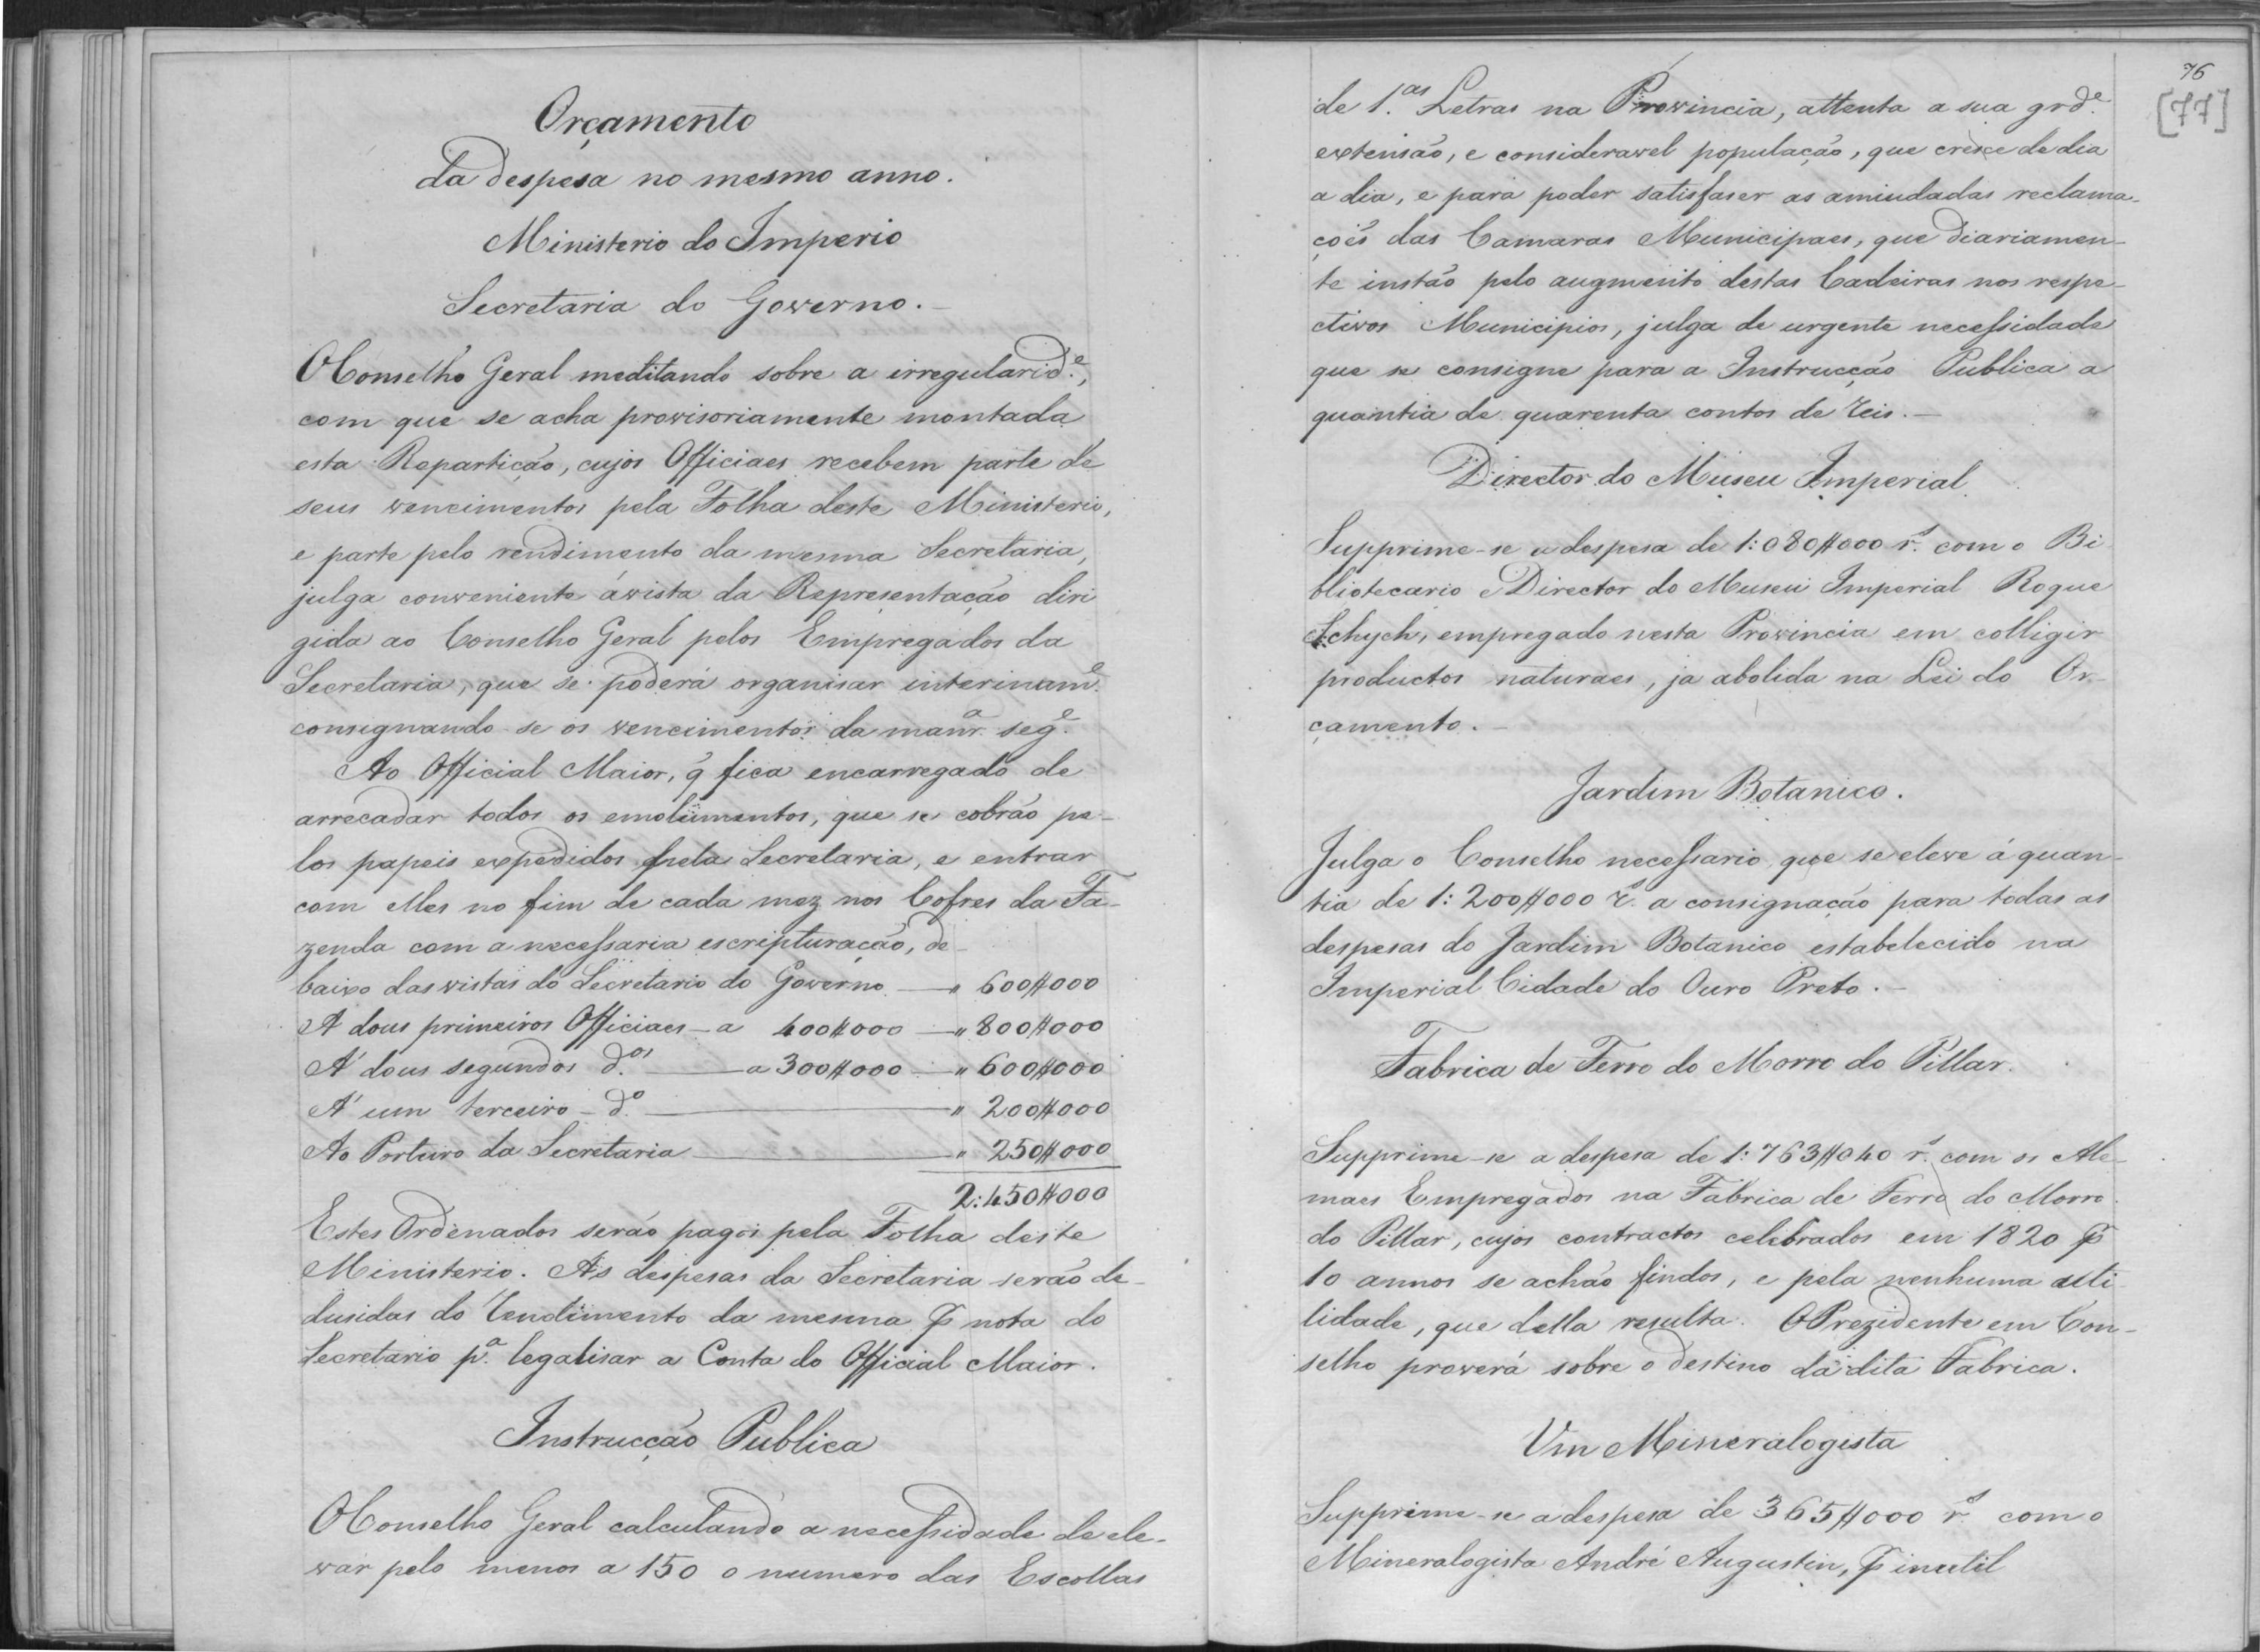 Orçamento
da despesa no mesmo anno.
Ministerio do Imperio
Secretaria do Governo.-
O Conselho Geral meditando sobre a irregularid.e,
com que se acha provisoriamente montada
esta Repartição, cujos Officiaes recebem parte de
seus vencimentos pela Folha deste Ministerio,
e parte pelo rendimento da mesma Secretaria,
julga conveniente ávista da Representação diri
gida ao Conselho Geral pelos Empregados da
Secretaria, que se poderá organisar interinam.e
consignando-se os vencimentos da manr.a seg.e
Ao Official Maior, q̃ fica encarregado de
arrecadar todos os emolumentos, que se cobrão pe-
los papeis expedidos pela Secretaria, e entrar
com elles no fim de cada mez nos Cofres da Fa-
zenda com a necessaria escripturação, de-
baixo das vistas do Secretario do Governo — " 600$000
A dous primeiros Officiaes - a 400$000 — " 800$000
A' dous segundos d.os — a 300$000 — " 600$000
A' um terceiro - d.o — " 200$000
Ao Porteiro da Secretaria — " 250$000
2:450$000
Estes Ordenados serão pagos pela Folha deste
Ministerio. As despesas da Secretaria serão de-
dusidas do rendimento da mesma p nota do
Secretario p.a legalisar a Conta do Official Maior.
Instrucção Publica
O Conselho Geral calculando a necessidade de ele-
var pelo menos a 150 o numero das Escollas
76
[77]
de 1.as Letras na Provincia, attenta a sua grd.e
extensão, e consideravel população, que cresce de dia
a dia, e para poder satisfaser as amiudadas reclama-
çoẽs das Camaras Municipaes, que diariamen-
te instão pelo augmento destas Cadeiras nos respe-
ctivos Municipios, julga de urgente necessidade
que se consigne para a Instrucção Publica a
quantia de quarenta contos de reis.-
Director do Museu Imperial.
Supprime-se a despesa de 1:080$000 r.s com o Bi
bliotecario e Director do Museu Imperial Roque
Schych, empregado nesta Provincia em colligir
productos naturaes, ja abolida na Lei do Or-
çamento.-
Jardim Botanico.
Julga o Conselho necessario que se eleve á quan-
tia de 1:200$000 r.s a consignação para todas as
despesas do Jardim Botanico estabelecido na
Imperial Cidade do Ouro Preto.-
Fabrica de Ferro do Morro do Pillar.
Supprime-se a despesa de 1:763$040 r.s com os Ale-
maes Empregados na Fabrica de Ferro do Morro
do Pillar, cujos contractos celebrados em 1820 p
10 annos se achão findos, e pela nenhuma utti
lidade, que della resulta. O Prezidente em Con-
selho proverá sobre o destino da dita Fabrica.
Um Mineralogista
Supprime-se a despesa de 365$000 r.s com o
Mineralogista André Augustin, p inutil